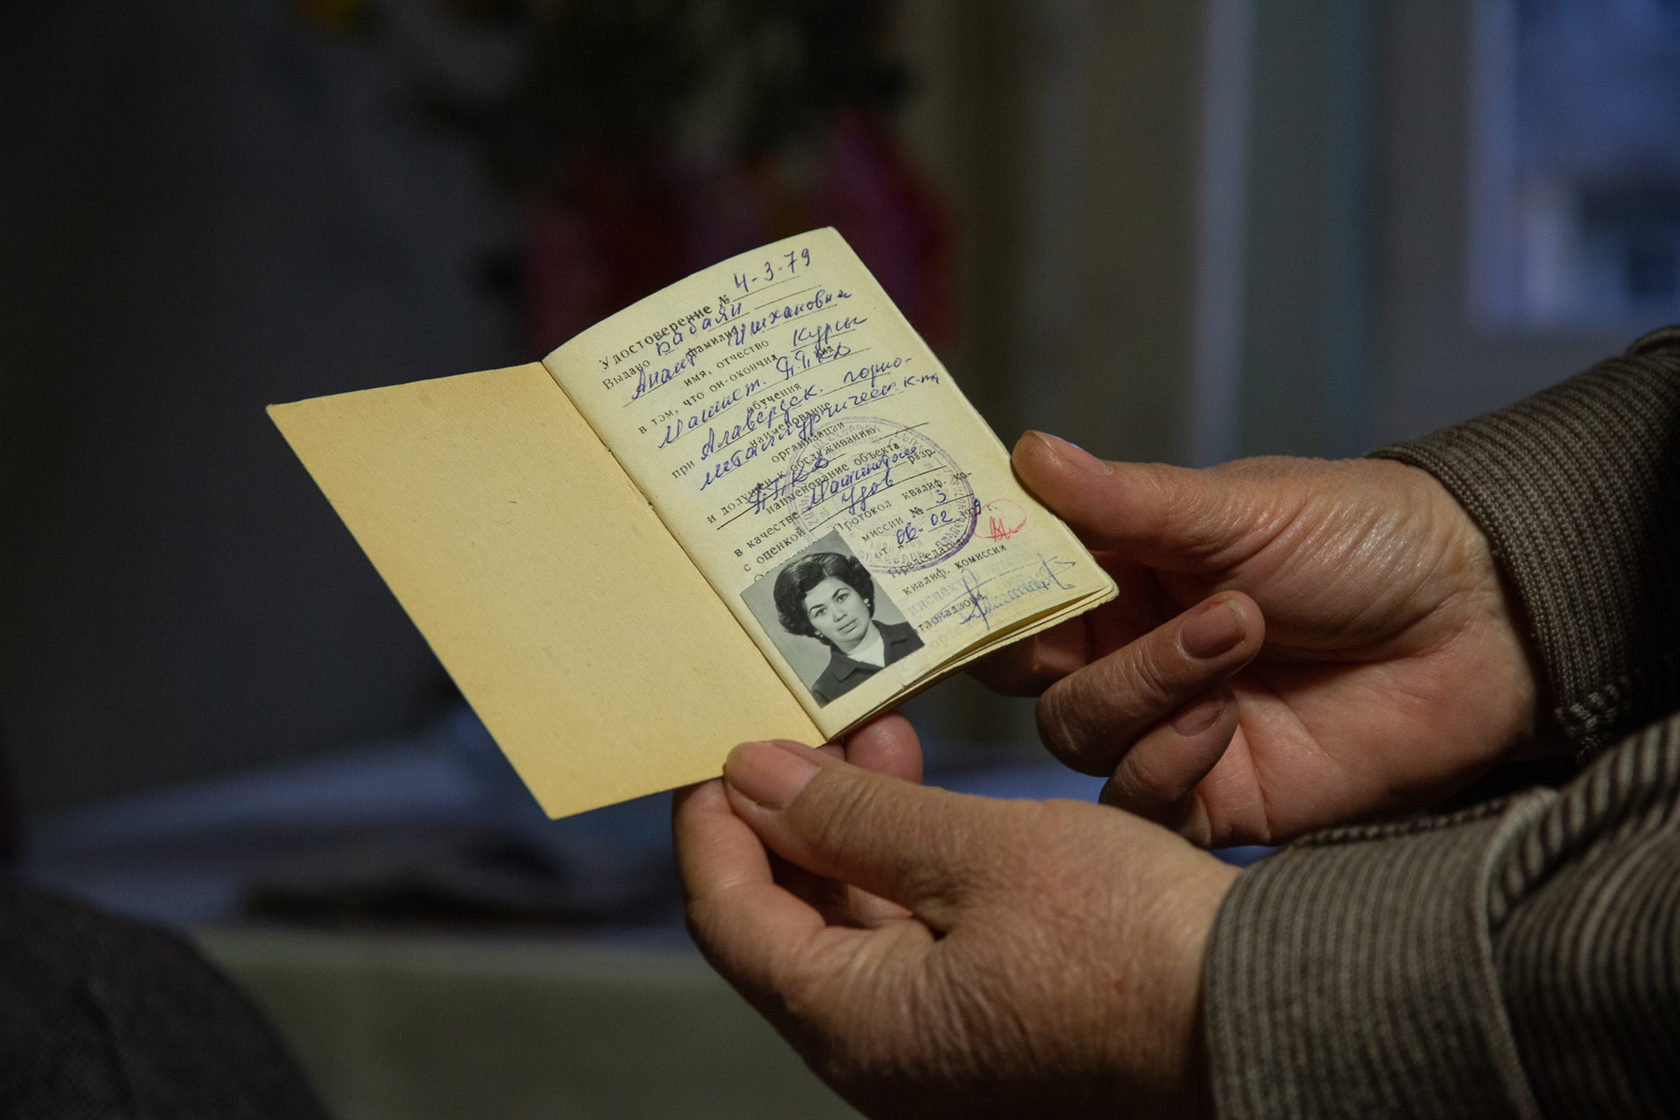 Удостоверение № 4-3-79
Выдано Бабаян
фамилия
Анаит Ишхановна
имя, отчество
в том, что он окончил Курсы
вид
Машист. ППКД
обучения
при Алавердск. горно-
наименование
металлургическ. к-та
организации
и допущен к обслуживанию
ППКД
наименование объекта
в качестве Машиниста разр.
с оценкой Удов
Протокол квалиф. ко-
миссии № 3
от 06.02 1979
Председатель
квалиф. комиссии
инспектор